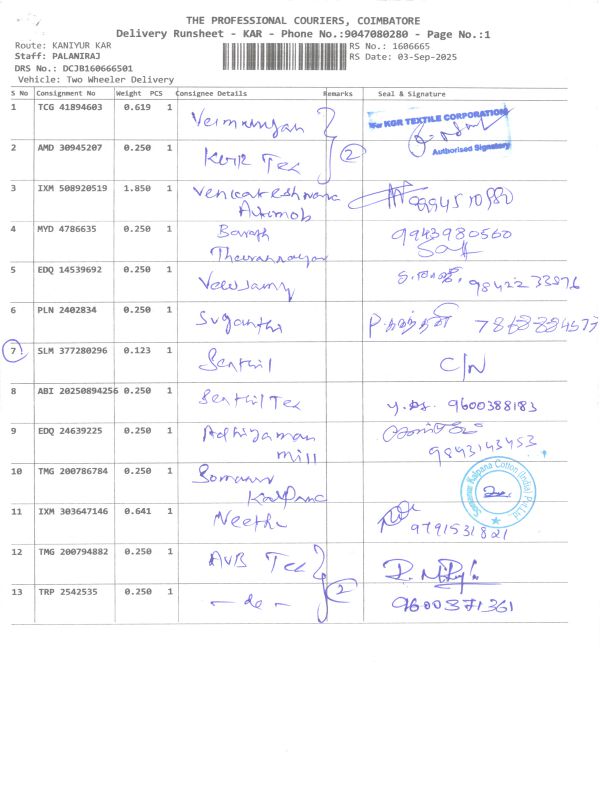 THE PROFESSIONAL COURIERS, COIMBATORE
Delivery Runsheet - KAR - Phone No.:9047080280 - Page No.:1
Route: KANIYUR KAR
RS No.: 1606665
Staff: PALANIRAJ
RS Date: 03-Sep-2025
DRS No.: DCJB160666501
Vehicle: Two Wheeler Delivery
S No Consignment No Weight PCS Consignee Details Remarks Seal & Signature
1 TCG 41894603 0.619 1
For KGR TEXTILE CORPORATION
Authorised Signatory
2 AMD 30945207 0.250 1 KGR Tex 2
3 IXM 508920519 1.850 1 Venkateshwara
Automob
4 MYD 4786635 0.250 1 Barath 9943980560
5 EDQ 14539692 0.250 1 Veluswamy
6 PLN 2402834 0.250 1 Suganthi
7 SLM 377280296 0.123 1 Senthil C/N
8 ABI 20250894256 0.250 1 Senthil Tex 9600388183
9 EDQ 24639225 0.250 1 Adhiyaman
mill 9843143453
10 TMG 200786784 0.250 1 Somanur
Kalpana
Somanur Kalpana Cotton (India) Pvt Ltd.
11 IXM 303647146 0.641 1 Neethi 9791531821
12 TMG 200794882 0.250 1 AVB Tex 2
13 TRP 2542535 0.250 1 - do - 9600371361